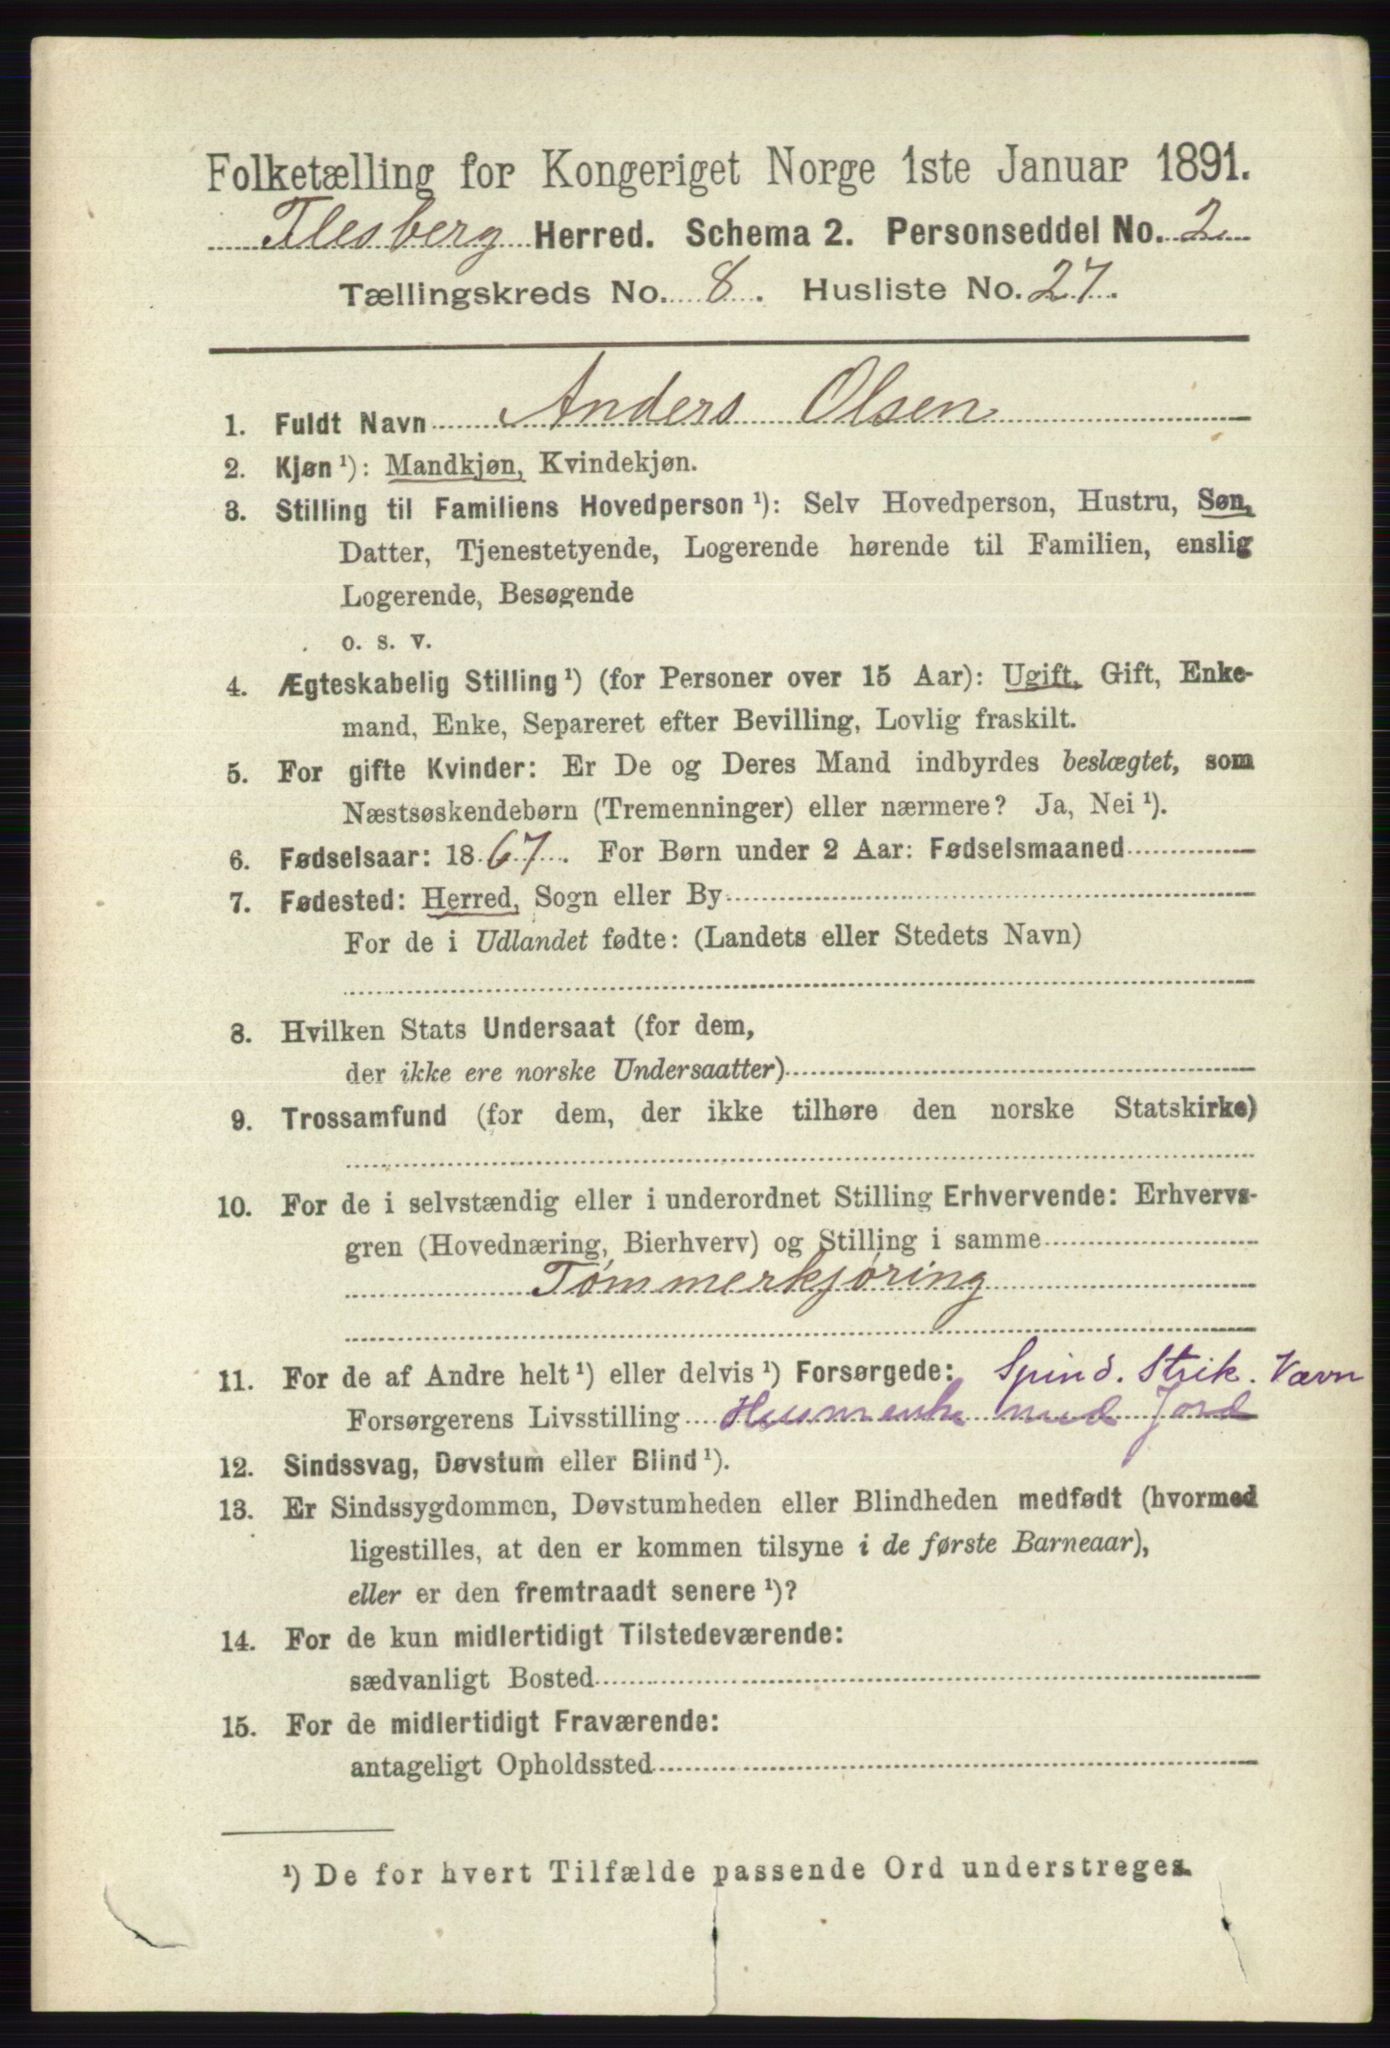 Folketælling for Kongeriget Norge 1ste Januar 1891.
Flesberg Herred. Schema 2. Personseddel No. 2
Tællingskreds No. 8. Husliste No. 27.
1. Fuldt Navn Anders Olsen
2. Kjøn ¹): Mandkjøn, Kvindekjøn.
3. Stilling til Familiens Hovedperson ¹): Selv Hovedperson, Hustru, Søn,
Datter, Tjenestetyende, Logerende hørende til Familien, enslig
Logerende, Besøgende
o. s. v.
4. Ægteskabelig Stilling ¹) (for Personer over 15 Aar): Ugift, Gift, Enke-
mand, Enke, Separeret efter Bevilling, Lovlig fraskilt.
5. For gifte Kvinder: Er De og Deres Mand indbyrdes beslægtet, som
Næstsøskendebørn (Tremenninger) eller nærmere? Ja, Nei ¹).
6. Fødselsaar: 1867. For Børn under 2 Aar: Fødselsmaaned
7. Fødested: Herred, Sogn eller By
For de i Udlandet fødte: (Landets eller Stedets Navn)
8. Hvilken Stats Undersaat (for dem,
der ikke ere norske Undersaatter)
9. Trossamfund (for dem, der ikke tilhøre den norske Statskirke)
10. For de i selvstændig eller i underordnet Stilling Erhvervende: Erhvervs-
gren (Hovednæring, Bierhverv) og Stilling i samme
Tømmerkjøring
11. For de af Andre helt ¹) eller delvis ¹) Forsørgede: Spind. Strik. Vævn
Forsørgerens Livsstilling Husmenke med Jord
12. Sindssvag, Døvstum eller Blind ¹).
13. Er Sindssygdommen, Døvstumheden eller Blindheden medfødt (hvormed
ligestilles, at den er kommen tilsyne i de første Barneaar),
eller er den fremtraadt senere ¹)?
14. For de kun midlertidigt Tilstedeværende:
sædvanligt Bosted
15. For de midlertidigt Fraværende:
antageligt Opholdssted
¹) De for hvert Tilfælde passende Ord understreges.